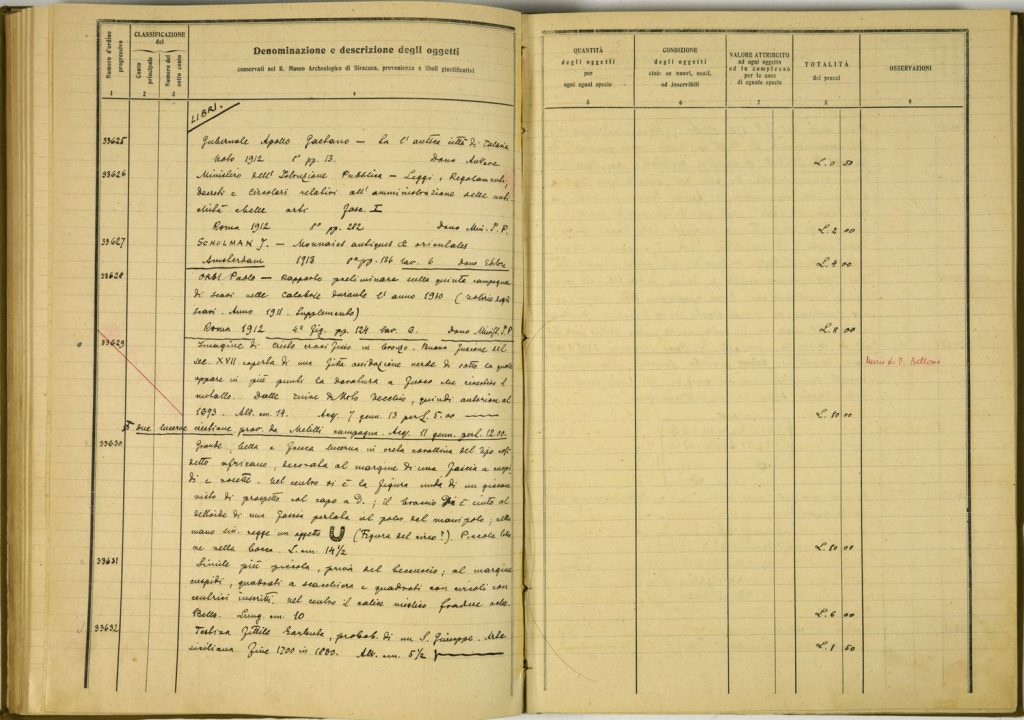 Numero d'ordine progressivo
CLASSIFICAZIONE
del
Conto principale
Numero del sotto conto
Denominazione e descrizione degli oggetti
conservati nel R. Museo Archeologico di Siracusa, provenienza e titoli giustificativi
1 2 3 4
QUANTITÀ
degli oggetti
per
ogni egual specie
5
CONDIZIONE
degli oggetti
cioè: se nuovi, usati,
od inservibili
6
VALORE ATTRIBUITO
ad ogni oggetto
ed in complesso
per le cose
di eguale specie
7
TOTALITÀ
dei prezzi
8
OSSERVAZIONI
9
LIBRI.
33625 Gubernale Apollo Gaetano — La l'antica città di Talaria
Noto 1912 8° pp. 13. Dono Autore L. 0 50
33626 Ministero dell'Istruzione Pubblica — Leggi, Regolamenti,
Decreti e Circolari relativi all'amministrazione delle anti
chità e belle arti Fasc. I
Roma 1912 8° pp. 282 Dono Min. I. P. L. 2 00
33627 SCHULMAN J. — Monnaies antiques & orientales
Amsterdam 1913 8° pp. 136 tav. 6 Dono Editore L. 4 00
33628 ORSI Paolo — Rapporto preliminare sulla quinta campagna
di scavi nelle Calabrie durante l'anno 1910 (Notizie degli
scavi. Anno 1911. Supplemento)
Roma 1912 4° fig. pp. 124 tav. 6. Dono I. P. L. 8 00
33629 Imagine di Cristo crocifisso in bronzo. Buona fusione del
sec. XVII coperta di una fitta ossidazione verde di sotto la quale
appare in più punti la doratura a fuoco che rivestiva il
metallo. Dalle ruine di Noto Vecchio, quindi anteriore al
1693. Alt. cm. 14. Acq. 7 genn. 13 per L. 5.00 L. 10 00
Museo di P. Bellomo
due lucerne cristiane, prov. da Melilli campagna. Acq. 11 genn. per L. 12.00.
33630 Grande, bella e fresca lucerna in creta corallina del tipo così
detto africano, decorata al margine di una fascia a cuspi
di e rosette. Nel centro vi è la figura nuda di un giovane
visto di prospetto col capo a D.; il braccio D. è cinto al
deltoide di una fascia perlata al polso del manipolo; nella
mano sin. regge un oggetto (Figura del circo?). Piccola
ne nella bocca. L. cm. 14½ L. 80 00
33631 Simile più piccola, priva del beccuccio; al margine
cuspidi, quadrati a scacchiera e quadrati con circoli con
centrici inscritti. Nel centro il calice mistico
Bella. Lung. cm. 10 L. 6 00
33632 Testina fittile barbuta, probab. di un S. Giuseppe. Arte
siciliana fine 1700 in 1800. Alt. cm. 5½ L. 1 50